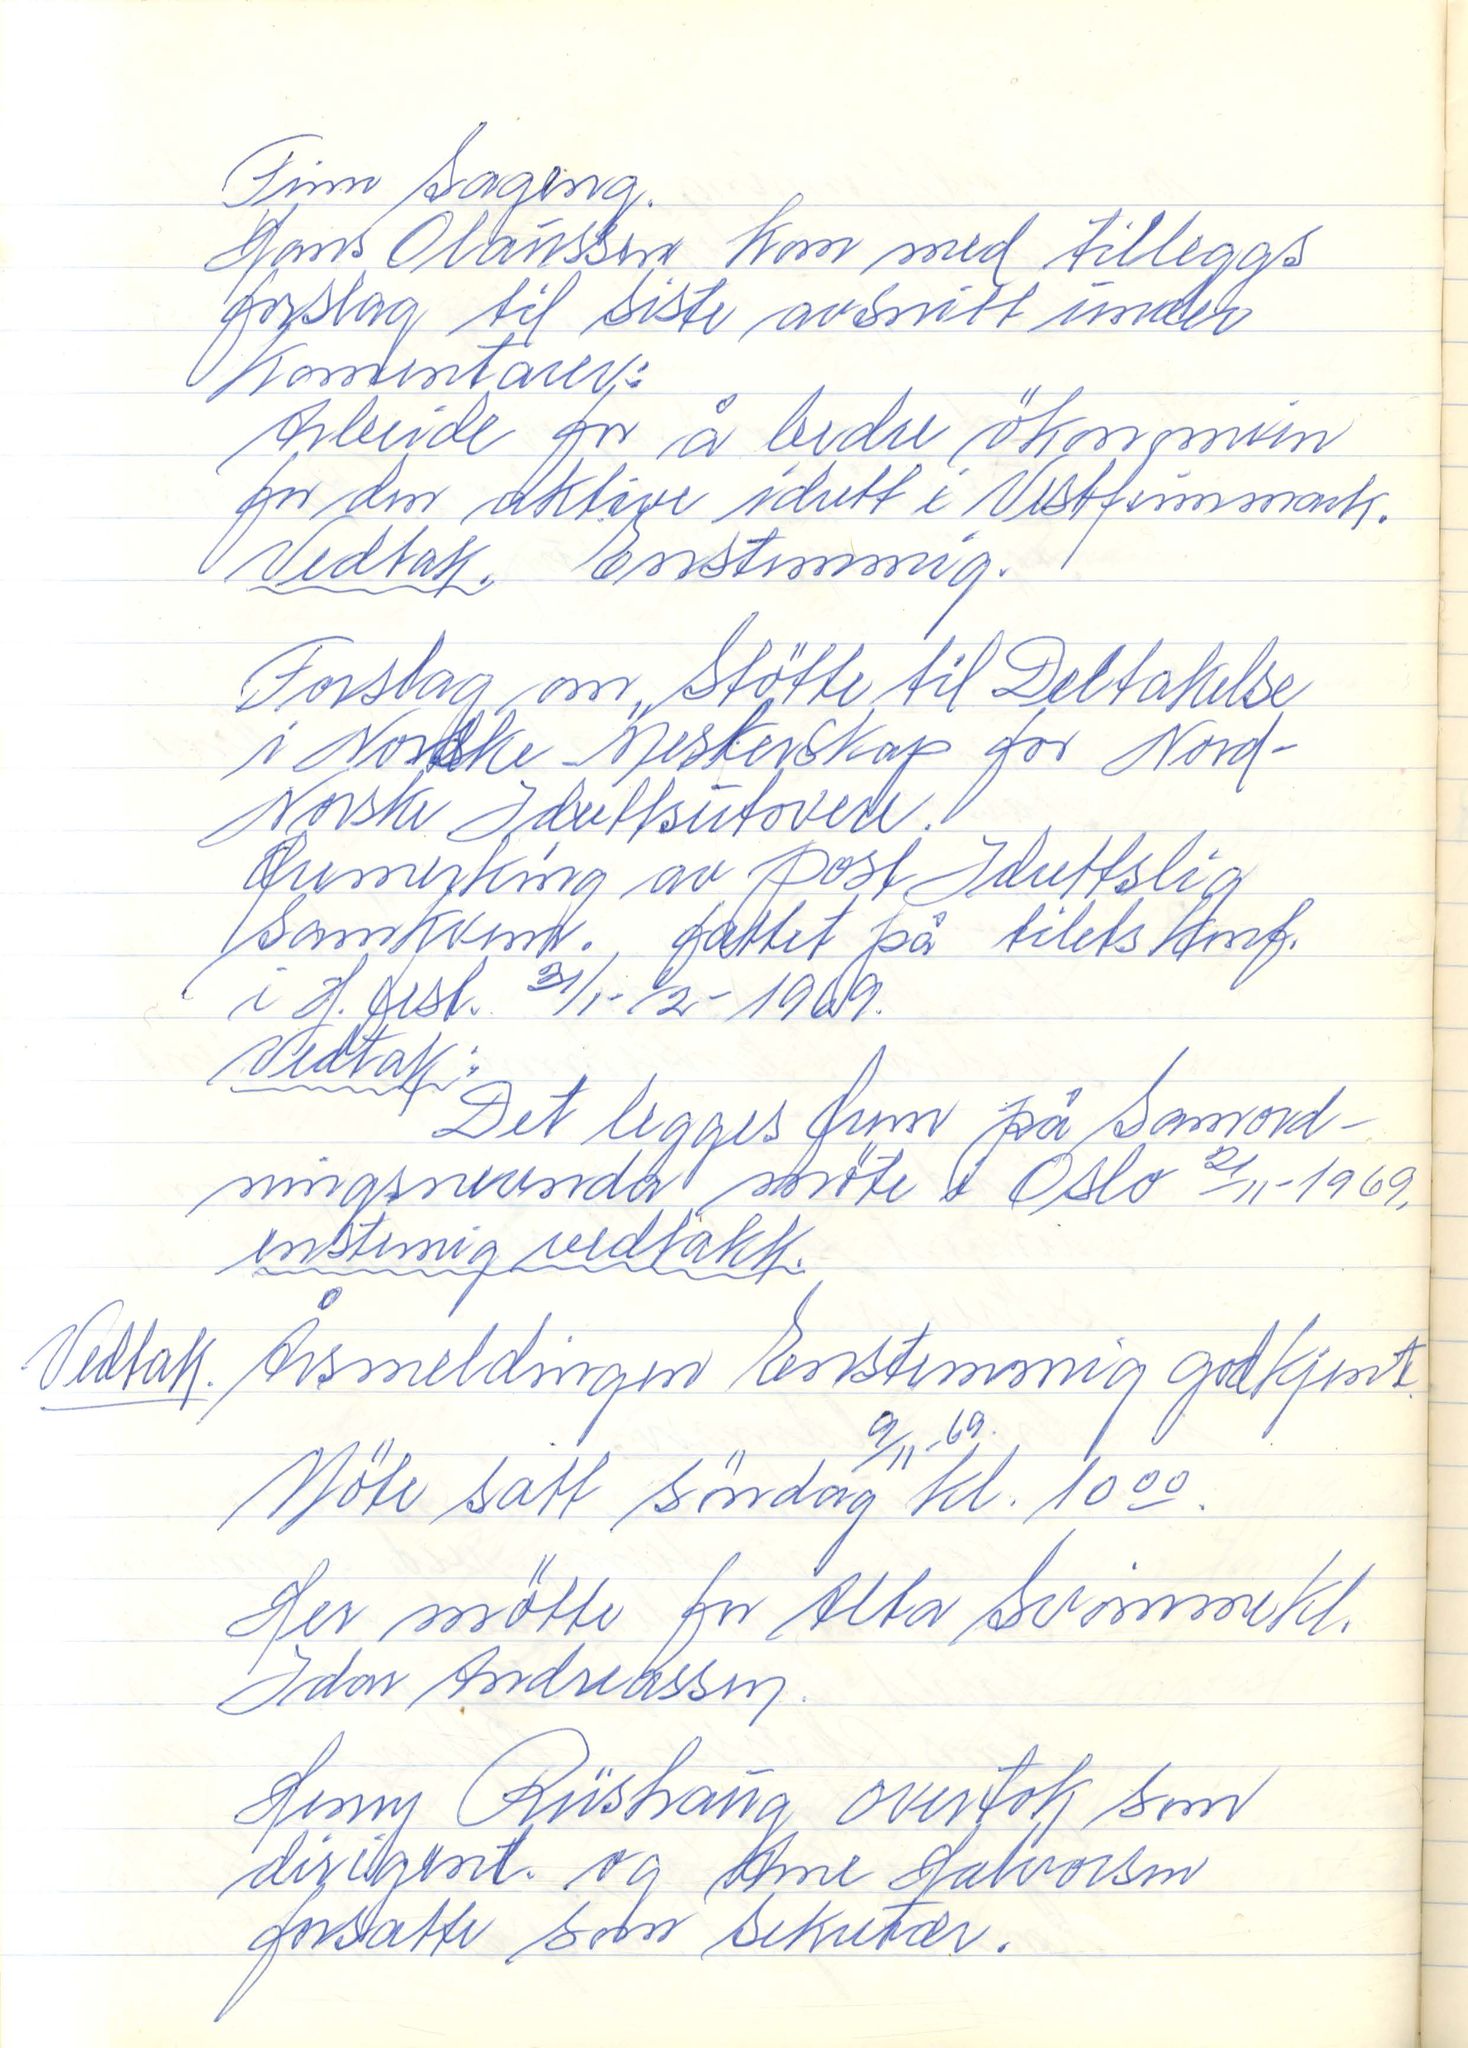 Finn Sageng.
Hans Olaussen kom med tilleggs
forslag til siste avsnitt under
Komentarer:
Arbeide for å bedre ökonomien
for den aktive idrett i Vestfinnmark.
Vedtak. Enstemmig.
Forslag om, Stötte til Deltakelse
i Norske Mesterskap for Nord-
Norske Idrettsutøvere.
Øremerking av post Idrettslig
Samkvem. fattet på tilets konf.
i H.fest. 31/1-1/2-1969.
Vedtak:
Det legges frem på Samord-
ningsnevnda möte i Oslo 21/11-1969.
enstemig vedtakk.
Vedtak. Årsmeldingen Enstemmig godkjent.
9/11-69.
Möte satt söndag kl. 10 00.
Her mötte for Alta Svömmekl.
Idar Andreassen.
Henry Rüshaug overtok som
dirigent. og Arne Halvorsen
forsatte som sekretær.